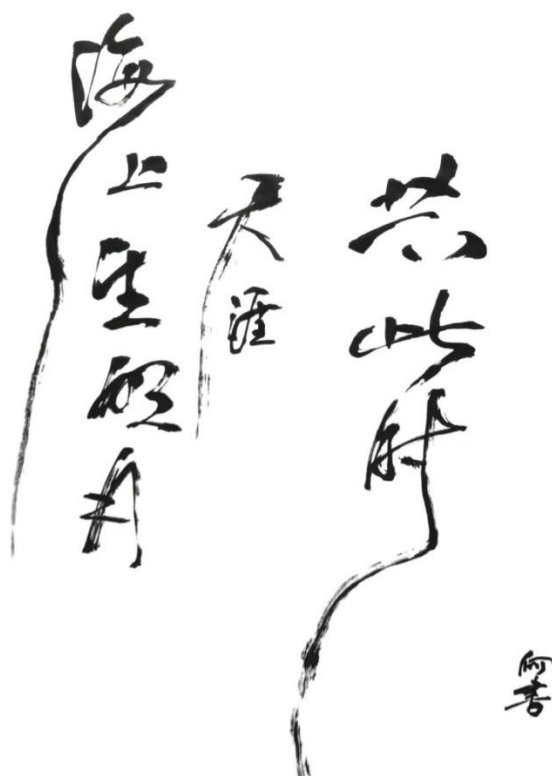 海上生明月
天涯
共此时